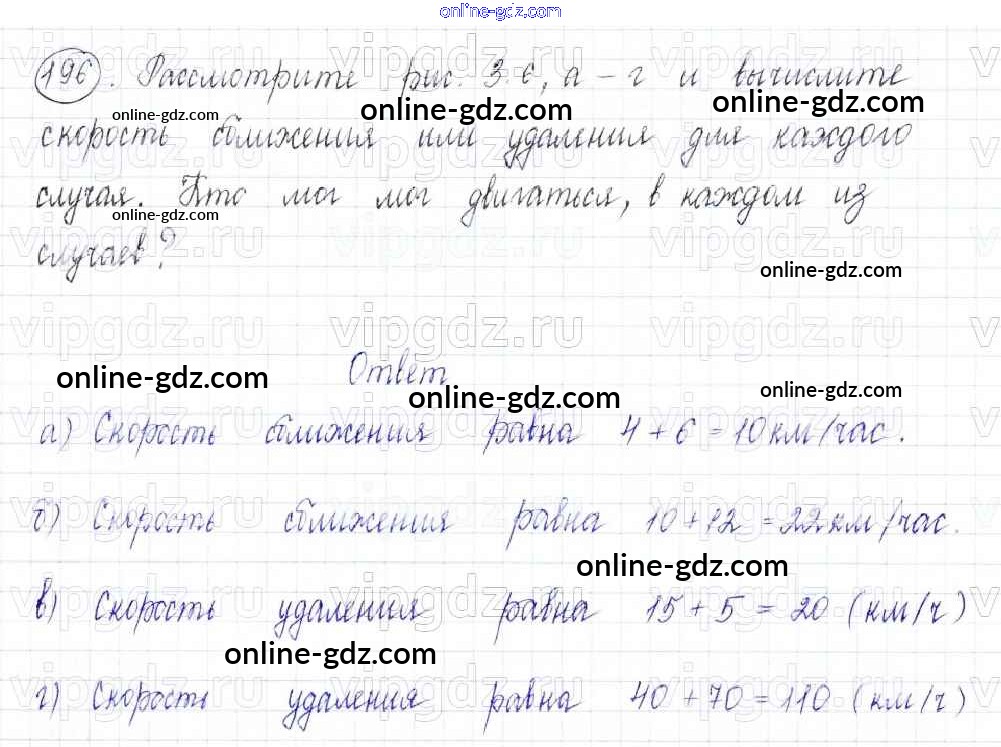 online-gdz.com
196. Рассмотрите рис. 3.6, а – г и вычислите
online-gdz.com online-gdz.com online-gdz.com
скорость сближения или удаления для каждого
случая. Кто мог мог двигаться, в каждом из
online-gdz.com
случаев?
online-gdz.com
vipgdz.ru vipgdz.ru vipgdz.ru
Ответ
online-gdz.com online-gdz.com online-gdz.com
а) Скорость сближения равна 4 + 6 = 10 км/час.
vipgdz.ru vipgdz.ru vipgdz.ru
б) Скорость сближения равна 10 + 12 = 22 км/час.
online-gdz.com
в) Скорость удаления равна 15 + 5 = 20 (км/ч)
online-gdz.com
г) Скорость удаления равна 40 + 70 = 110 (км/ч)